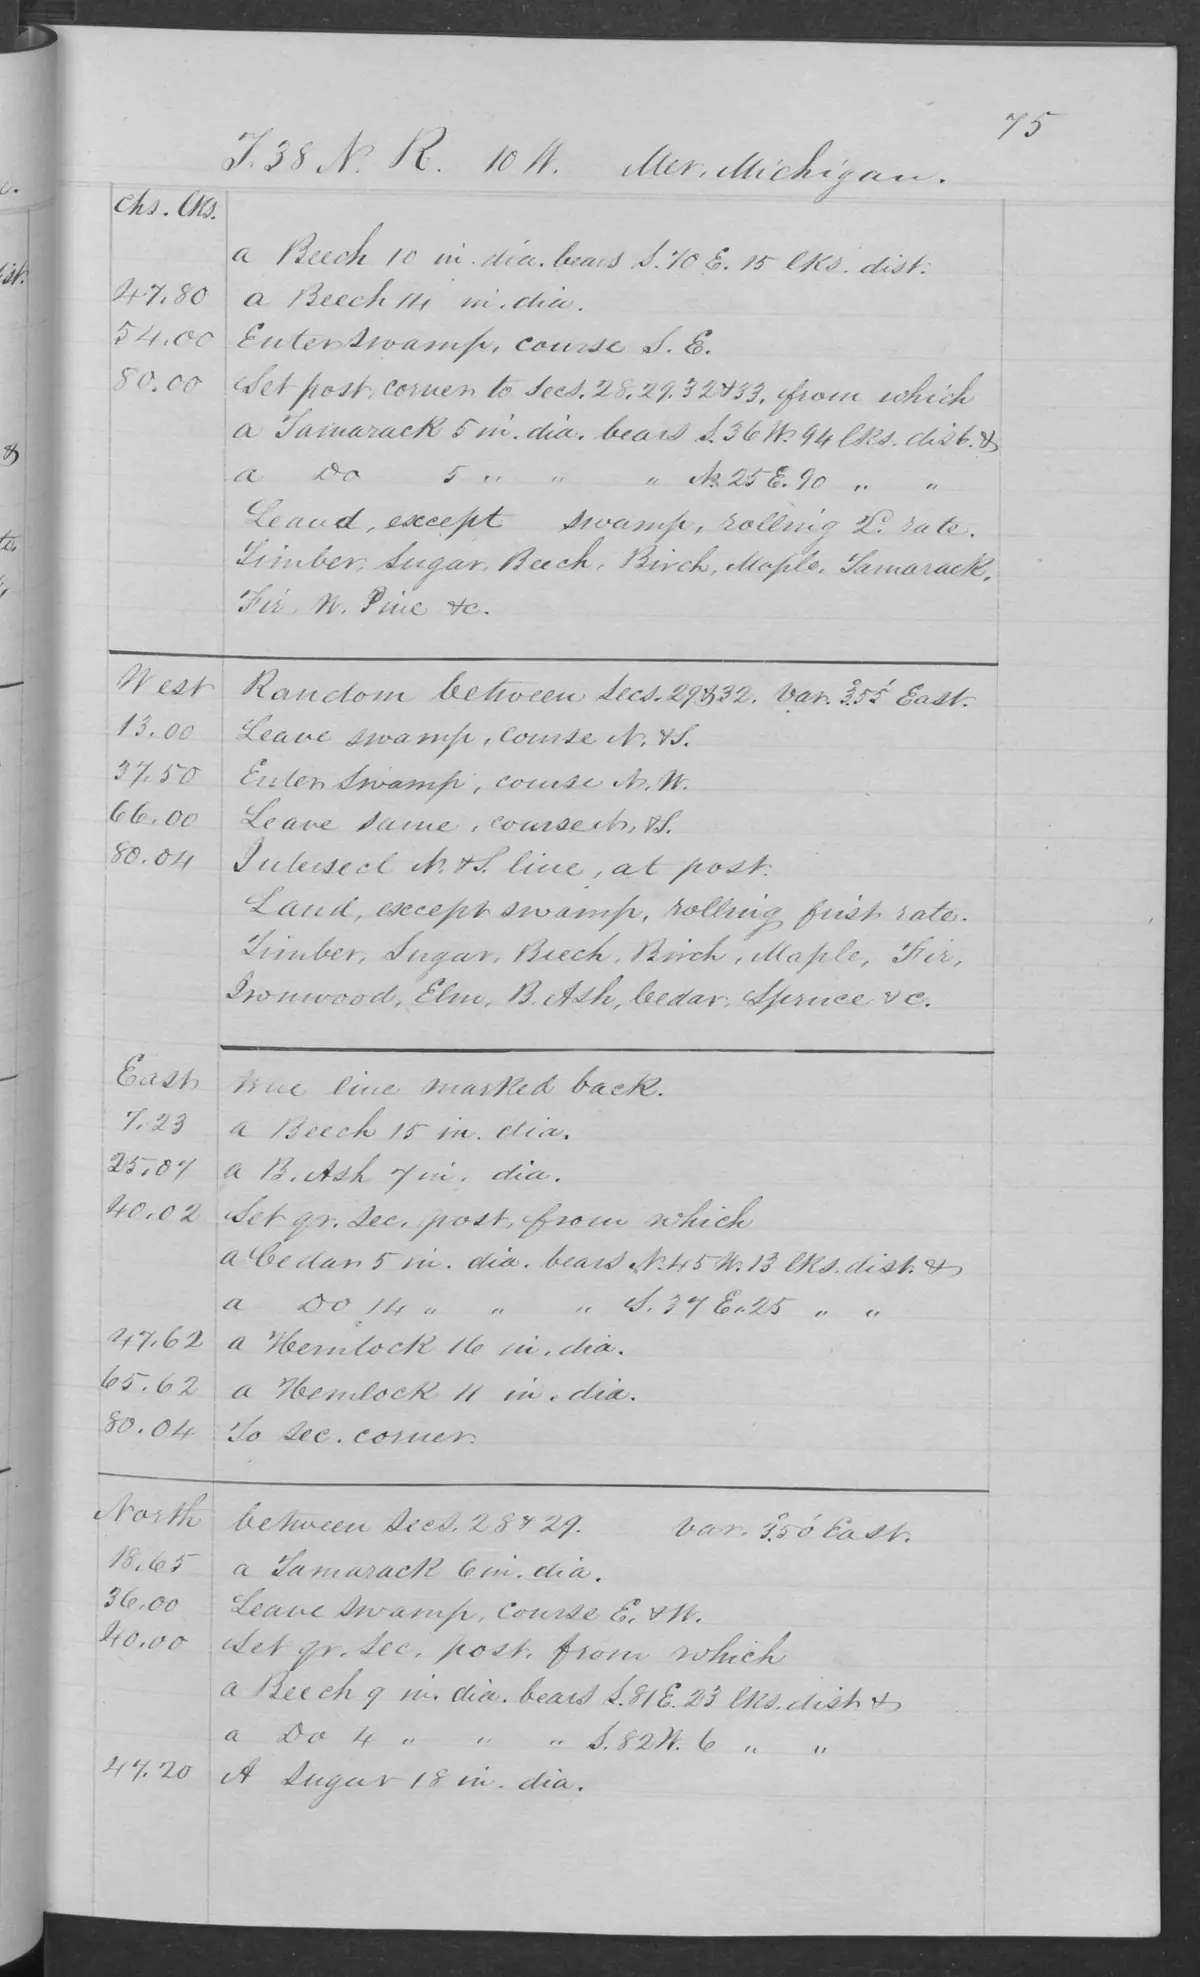 75
T. 38 N. R. 10 W. Mer. Michigan.
Chs. lks.
a Beech 10 in. dia. bears S. 70 E. 15 lks. dist.
47.80 a Beech 14 in. dia.
54.00 Enter swamp, course S. E.
80.00 Set post, corner to Secs. 28. 29. 32 & 33, from which
a Tamarack 5 in. dia. bears S. 36 W. 94 lks. dist. &
a Do 5 " " " N. 25 E. 90 " "
Leaud, except swamp, rolling 2. rate.
Timber, Sugar, Beech, Birch, Maple, Tamarack,
Fir, W. Pine &c.
West Random between Secs. 29 & 32. Var. 3°55' East.
13.00 Leave swamp, course N. & S.
37.50 Enter Swamp, course N. W.
66.00 Leave same, course N. & S.
80.04 Intersect N. & S. line, at post.
Land, except swamp, rolling first rate.
Timber, Sugar, Beech, Birch, Maple, Fir,
Ironwood, Elm, B. Ash, Cedar, Spruce &c.
East true line marked back.
7.23 a Beech 15 in. dia.
25.07 a B. Ash 7 in. dia.
40.02 Set qr. Sec. post, from which
a Cedar 5 in. dia. bears N. 45 W. 13 lks. dist. &
a Do 14 " " " S. 37 E. 25 " "
47.62 a Hemlock 16 in. dia.
65.62 a Hemlock 11 in. dia.
80.04 To Sec. corner.
North between Secs. 28 & 29. Var. 3°50' East.
18.65 a Tamarack 6 in. dia.
36.00 Leave swamp, course E. & W.
40.00 Set qr. Sec. post, from which
a Beech 9 in. dia. bears S. 81 E. 23 lks. dist &
a Do 4 " " " S. 82 W. 6 " "
47.20 A Sugar 18 in. dia.